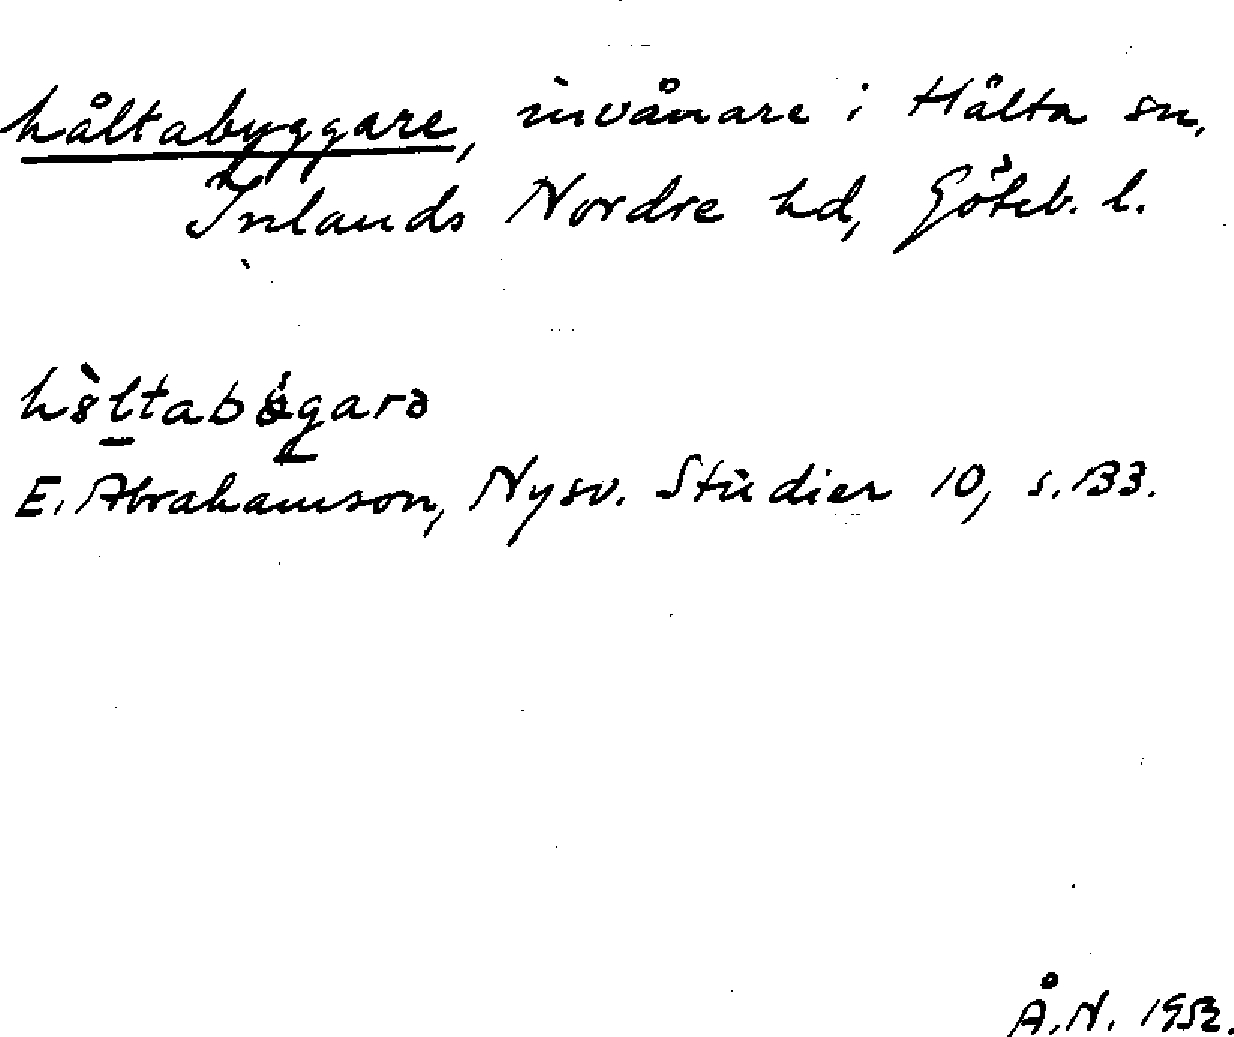 håltabyggare, invånare i Hålta sn,
Inlands Nordre hd, Göteb. l.
E. Abrahamson, Nysv. Studier 10, s. 133.
Å.N. 1952.